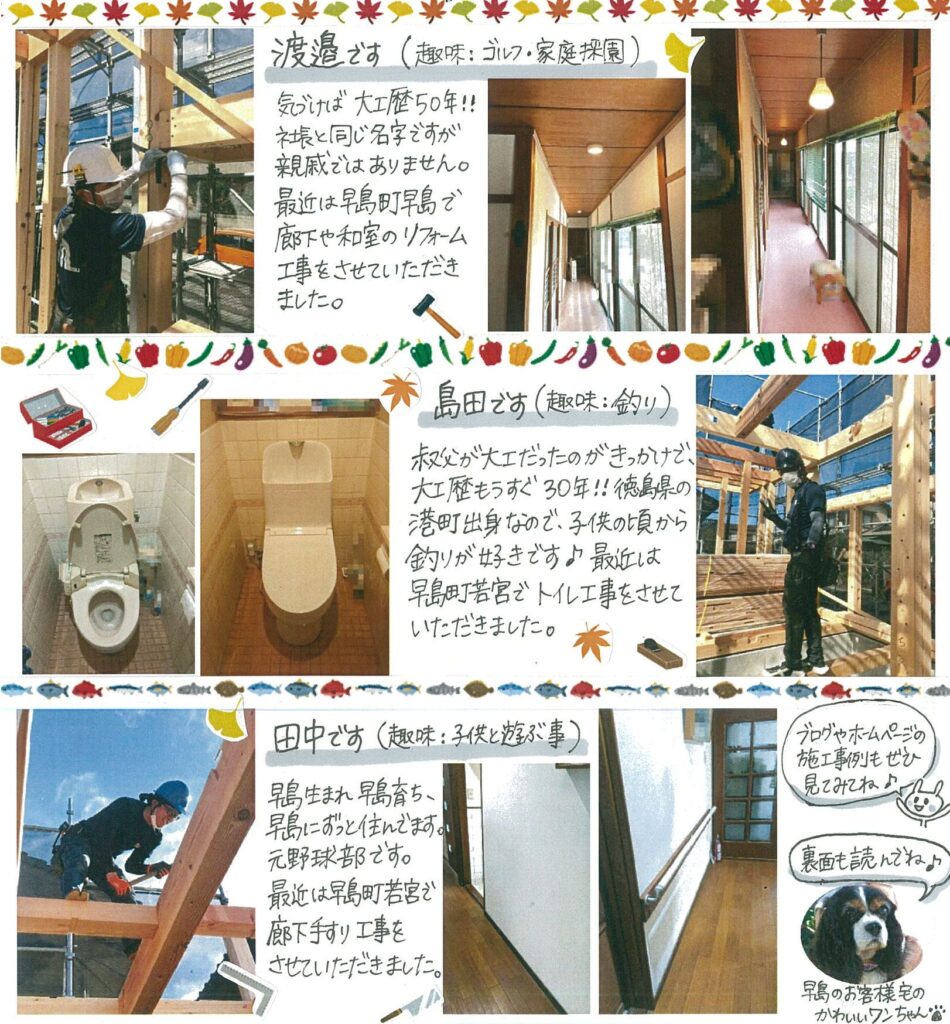 渡邉です（趣味：ゴルフ・家庭採園）
気づけば 大工歴50年!!
社長と同じ名字ですが
親戚ではありません。
最近は早島町早島で
廊下や和室のリフォーム
工事をさせていただき
ました。
島田です（趣味：釣り）
叔父が大工だったのがきっかけで、
大工歴もうすぐ30年!! 徳島県の
港町出身なので、子供の頃から
釣りが好きです♪ 最近は
早島町若宮でトイレ工事をさせて
いただきました。
田中です（趣味：子供と遊ぶ事）
早島生まれ 早島育ち、
早島にずっと住んでます。
元野球部です。
最近は早島町若宮で
廊下手すり工事を
させていただきました。
ブログやホームページの
施工事例もぜひ
見てみてね♪
裏面も読んでね♪
早島のお客様宅の
かわいいワンちゃん